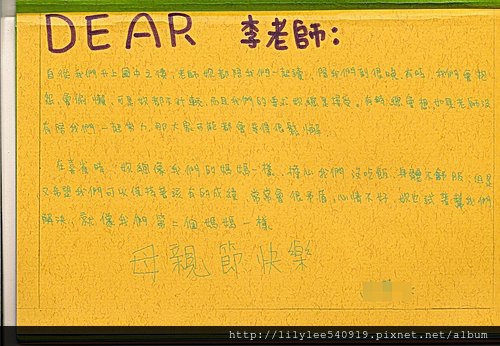 DEAR 李老師:
自從我們升上國中之後,老師您都陪我們一起讀,陪我們到很晚,有時,我們會抱
怨,會偷懶,可是您都不計較,而且我們的要求您總是接受。有時總會想,如果老師沒
有陪我們一起努力,那大家可能都會變得很鬆懈。
在喜雀時,您總像我們的媽媽一樣,擔心我們沒吃飯、身體不舒服;但是
又希望我們可以保持著該有的成績,常常會很矛盾,心情不好,您也試著幫我們
解決,就像我們第二個媽媽一樣。
母親節快樂
http://lilylee540919.pixnet.net/album